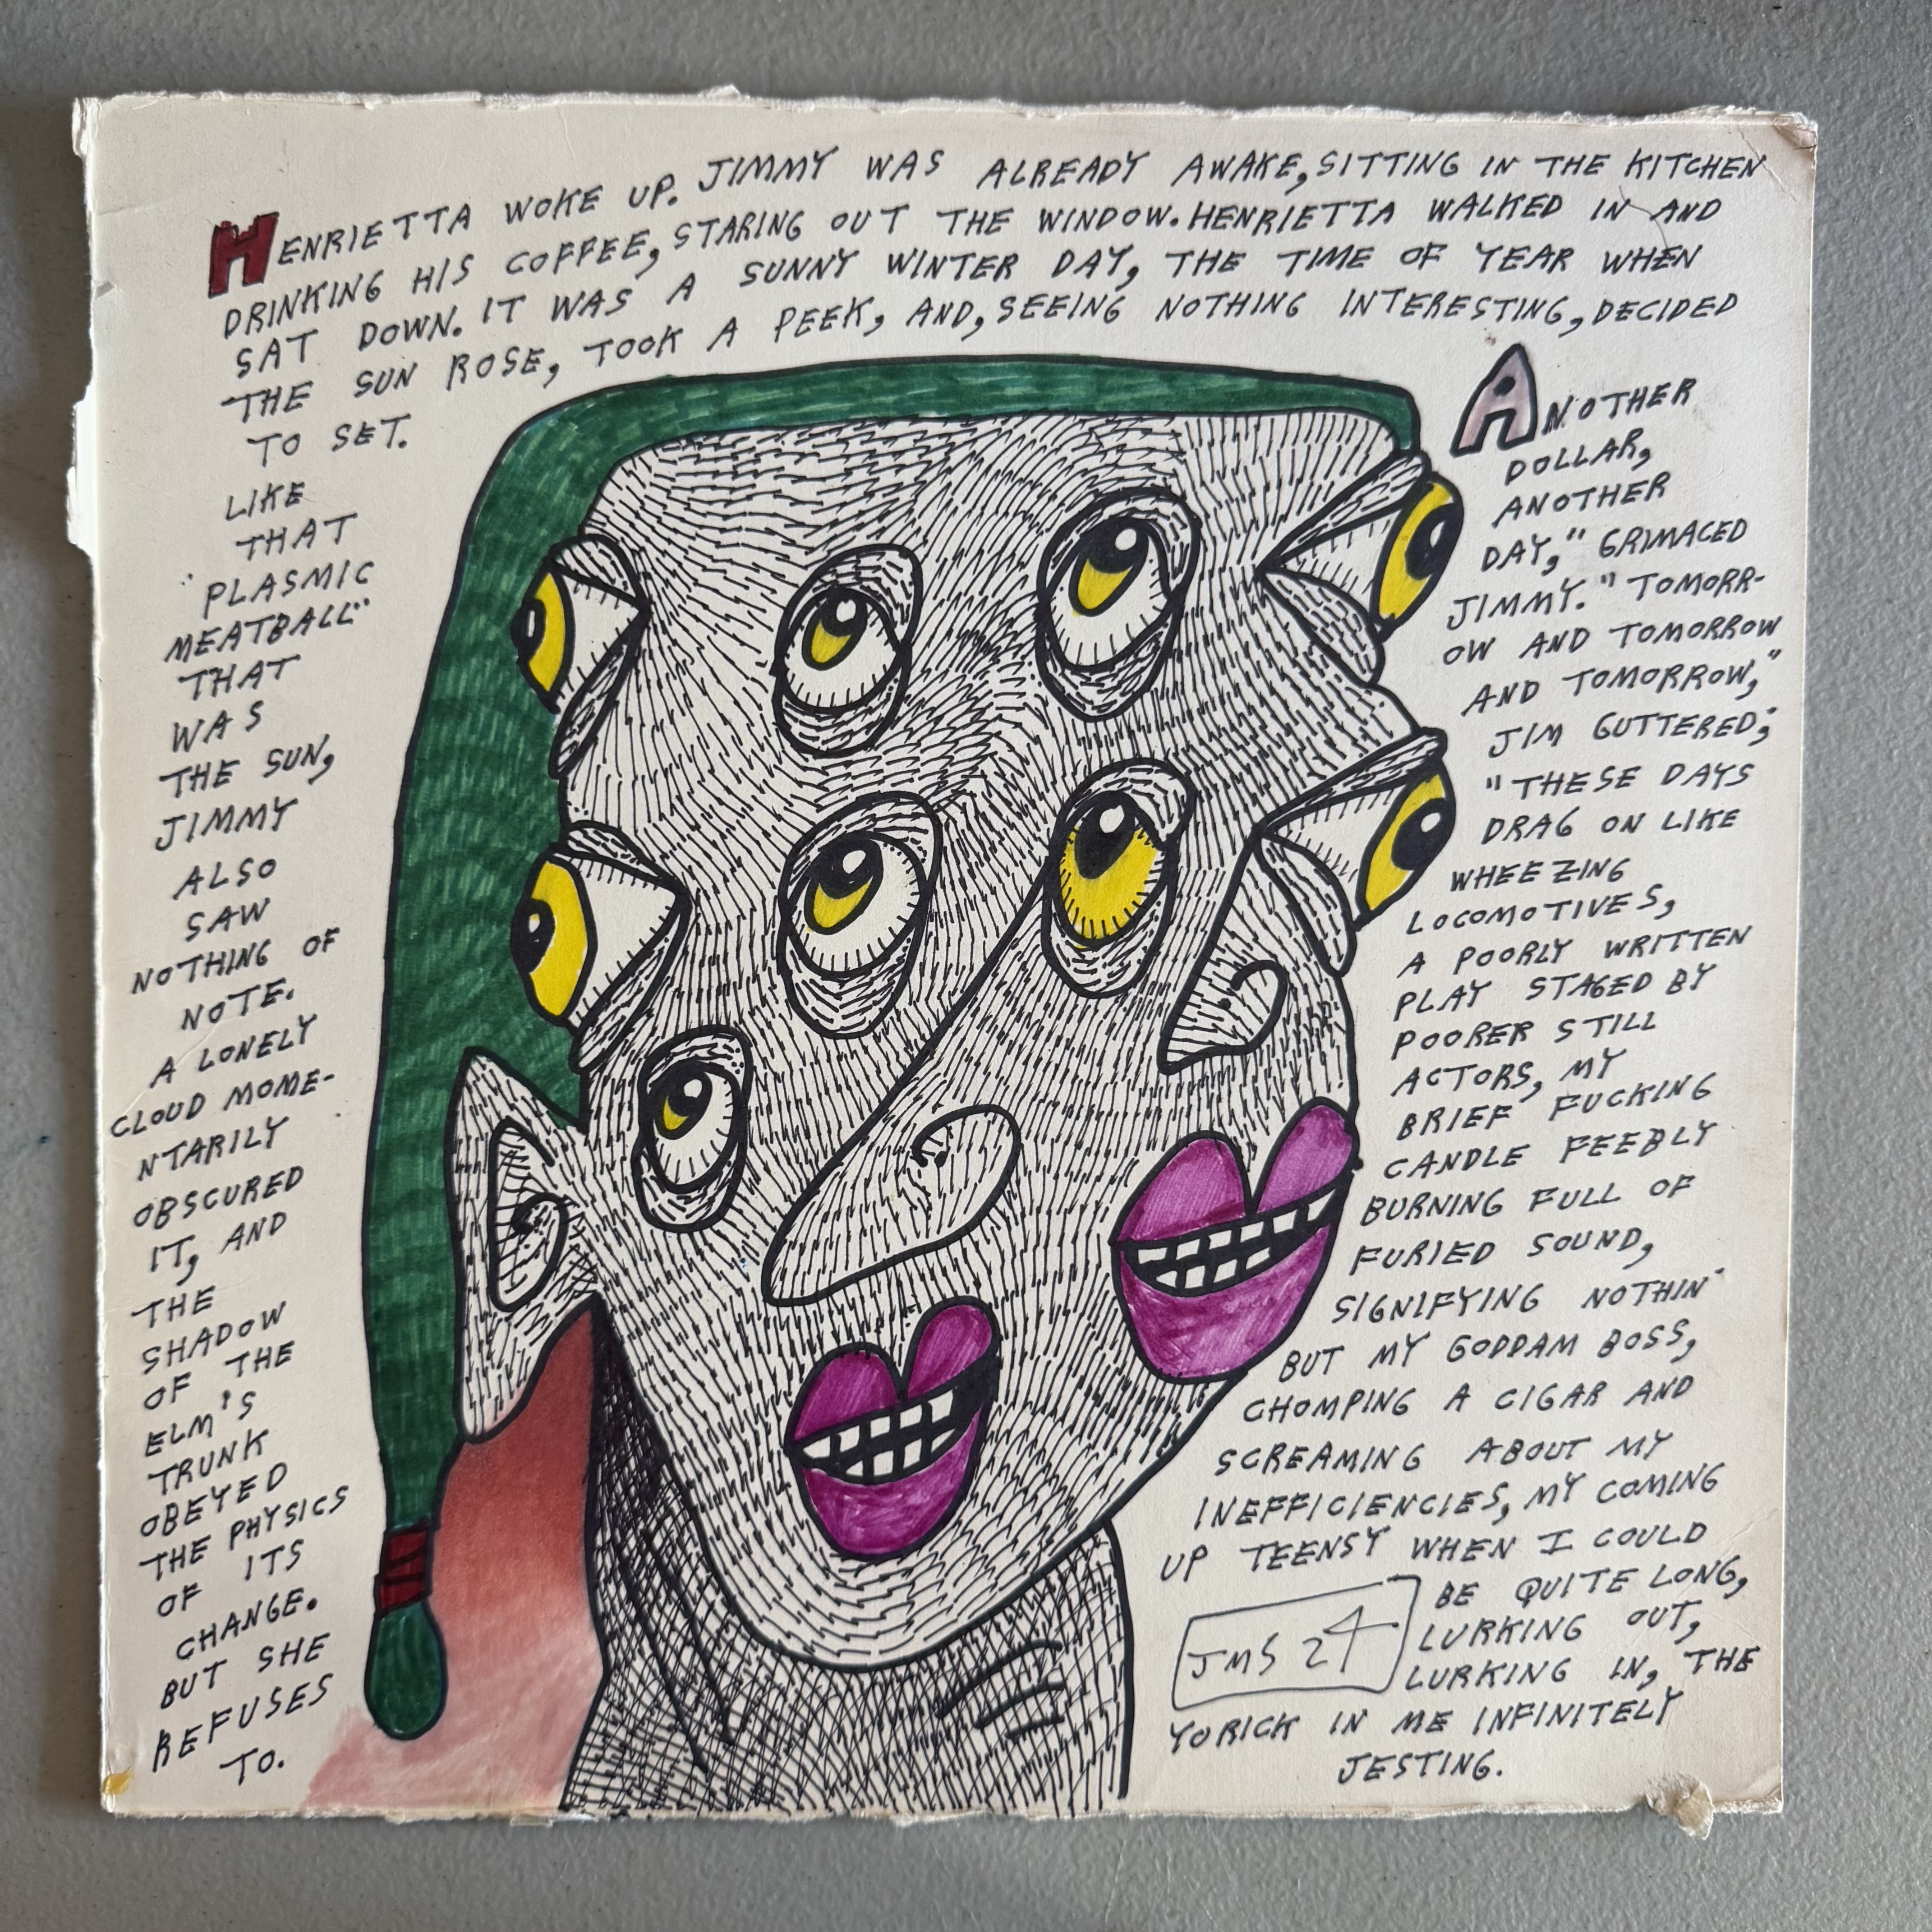 HENRIETTA WOKE UP. JIMMY WAS ALREADY AWAKE, SITTING IN THE KITCHEN
DRINKING HIS COFFEE, STARING OUT THE WINDOW. HENRIETTA WALKED IN AND
SAT DOWN. IT WAS A SUNNY WINTER DAY, THE TIME OF YEAR WHEN
THE SUN ROSE, TOOK A PEEK, AND, SEEING NOTHING INTERESTING, DECIDED
TO SET.
LIKE
THAT
"PLASMIC
MEATBALL"
THAT
WAS
THE SUN,
JIMMY
ALSO
SAW
NOTHING OF
NOTE.
A LONELY
CLOUD MOME-
NTARILY
OBSCURED
IT, AND
THE
SHADOW
OF THE
ELM'S
TRUNK
OBEYED
THE PHYSICS
OF ITS
CHANGE.
BUT SHE
REFUSES
TO.
ANOTHER
DOLLAR,
ANOTHER
DAY," GRIMACED
JIMMY. "TOMORR-
OW AND TOMORROW
AND TOMORROW,"
JIM GUTTERED;
"THESE DAYS
DRAG ON LIKE
WHEEZING
LOCOMOTIVES,
A POORLY WRITTEN
PLAY STAGED BY
POORER STILL
ACTORS, MY
BRIEF FUCKING
CANDLE FEEBLY
BURNING FULL OF
FURIED SOUND,
SIGNIFYING NOTHIN'
BUT MY GODDAM BOSS,
CHOMPING A CIGAR AND
SCREAMING ABOUT MY
INEFFICIENCIES, MY COMING
UP TEENSY WHEN I COULD
BE QUITE LONG,
LURKING OUT,
LURKING IN, THE
YORICK IN ME INFINITELY
JESTING.
JMS 24